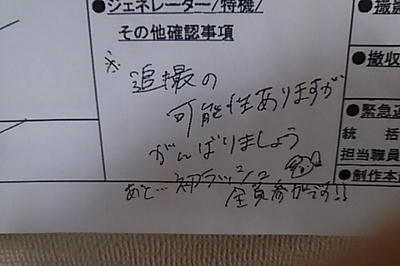 ●ジェネレーター/特機/
その他確認事項
※追撮の
可能性ありますが
がんばりましょう
あと…
全員参加です!!
●撮影
●撤収
●緊急連
統 括
担当職員
●制作本